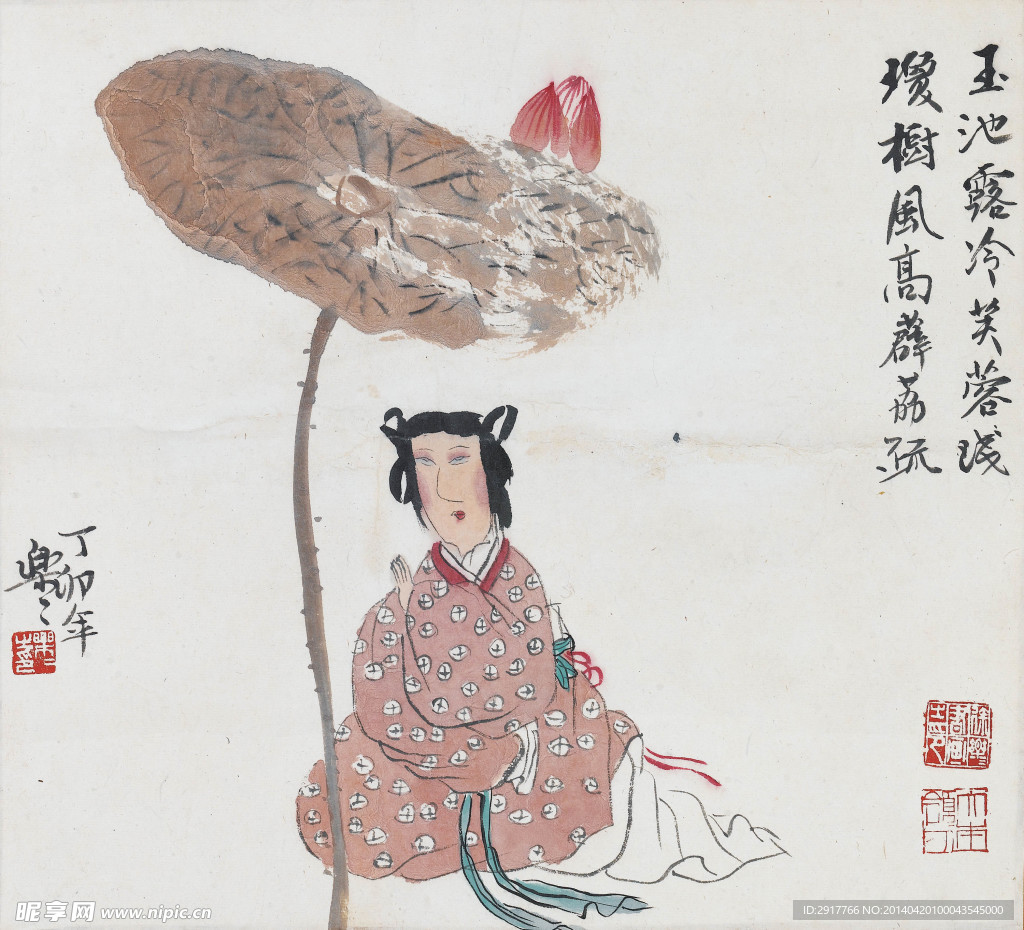 玉池露冷芙蓉浅
瓊樹風高薜荔疏
丁卯年
樂〻
昵享网 www.nipic.cn
ID:2917766 NO:20140420100043545000